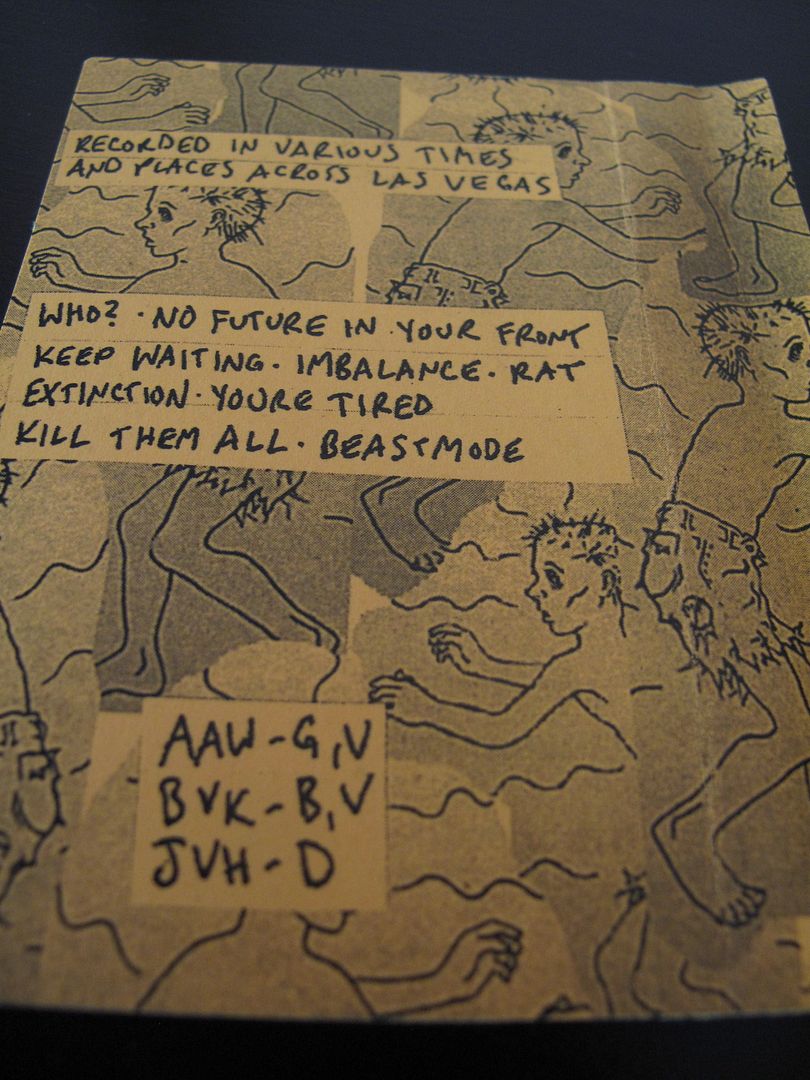 RECORDED IN VARIOUS TIMES
AND PLACES ACROSS LAS VEGAS
WHO? · NO FUTURE IN · YOUR FRONT
KEEP WAITING · IMBALANCE · RAT
EXTINCTION · YOURE TIRED
KILL THEM ALL · BEASTMODE
AAW - G, V
BVK - B, V
JVH - D